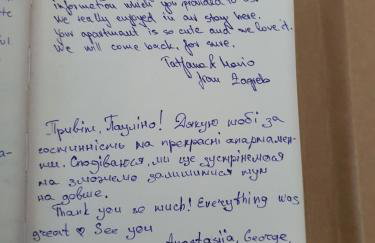 information which you provided to us.
We really enjoyed in our stay here.
Your apartment is so cute and we love it.
We will come back, for sure.
Tatjana & Mario
from Zagreb
Привіт, Пауліно! Дякую тобі за
гостинність та прекрасні апартамен-
ти. Сподіваюся, ми ще зустрінемося
та зможемо залишитися тут
на довше.
Thank you so much! Everything was
great ♡ See you
Anastasiia, George